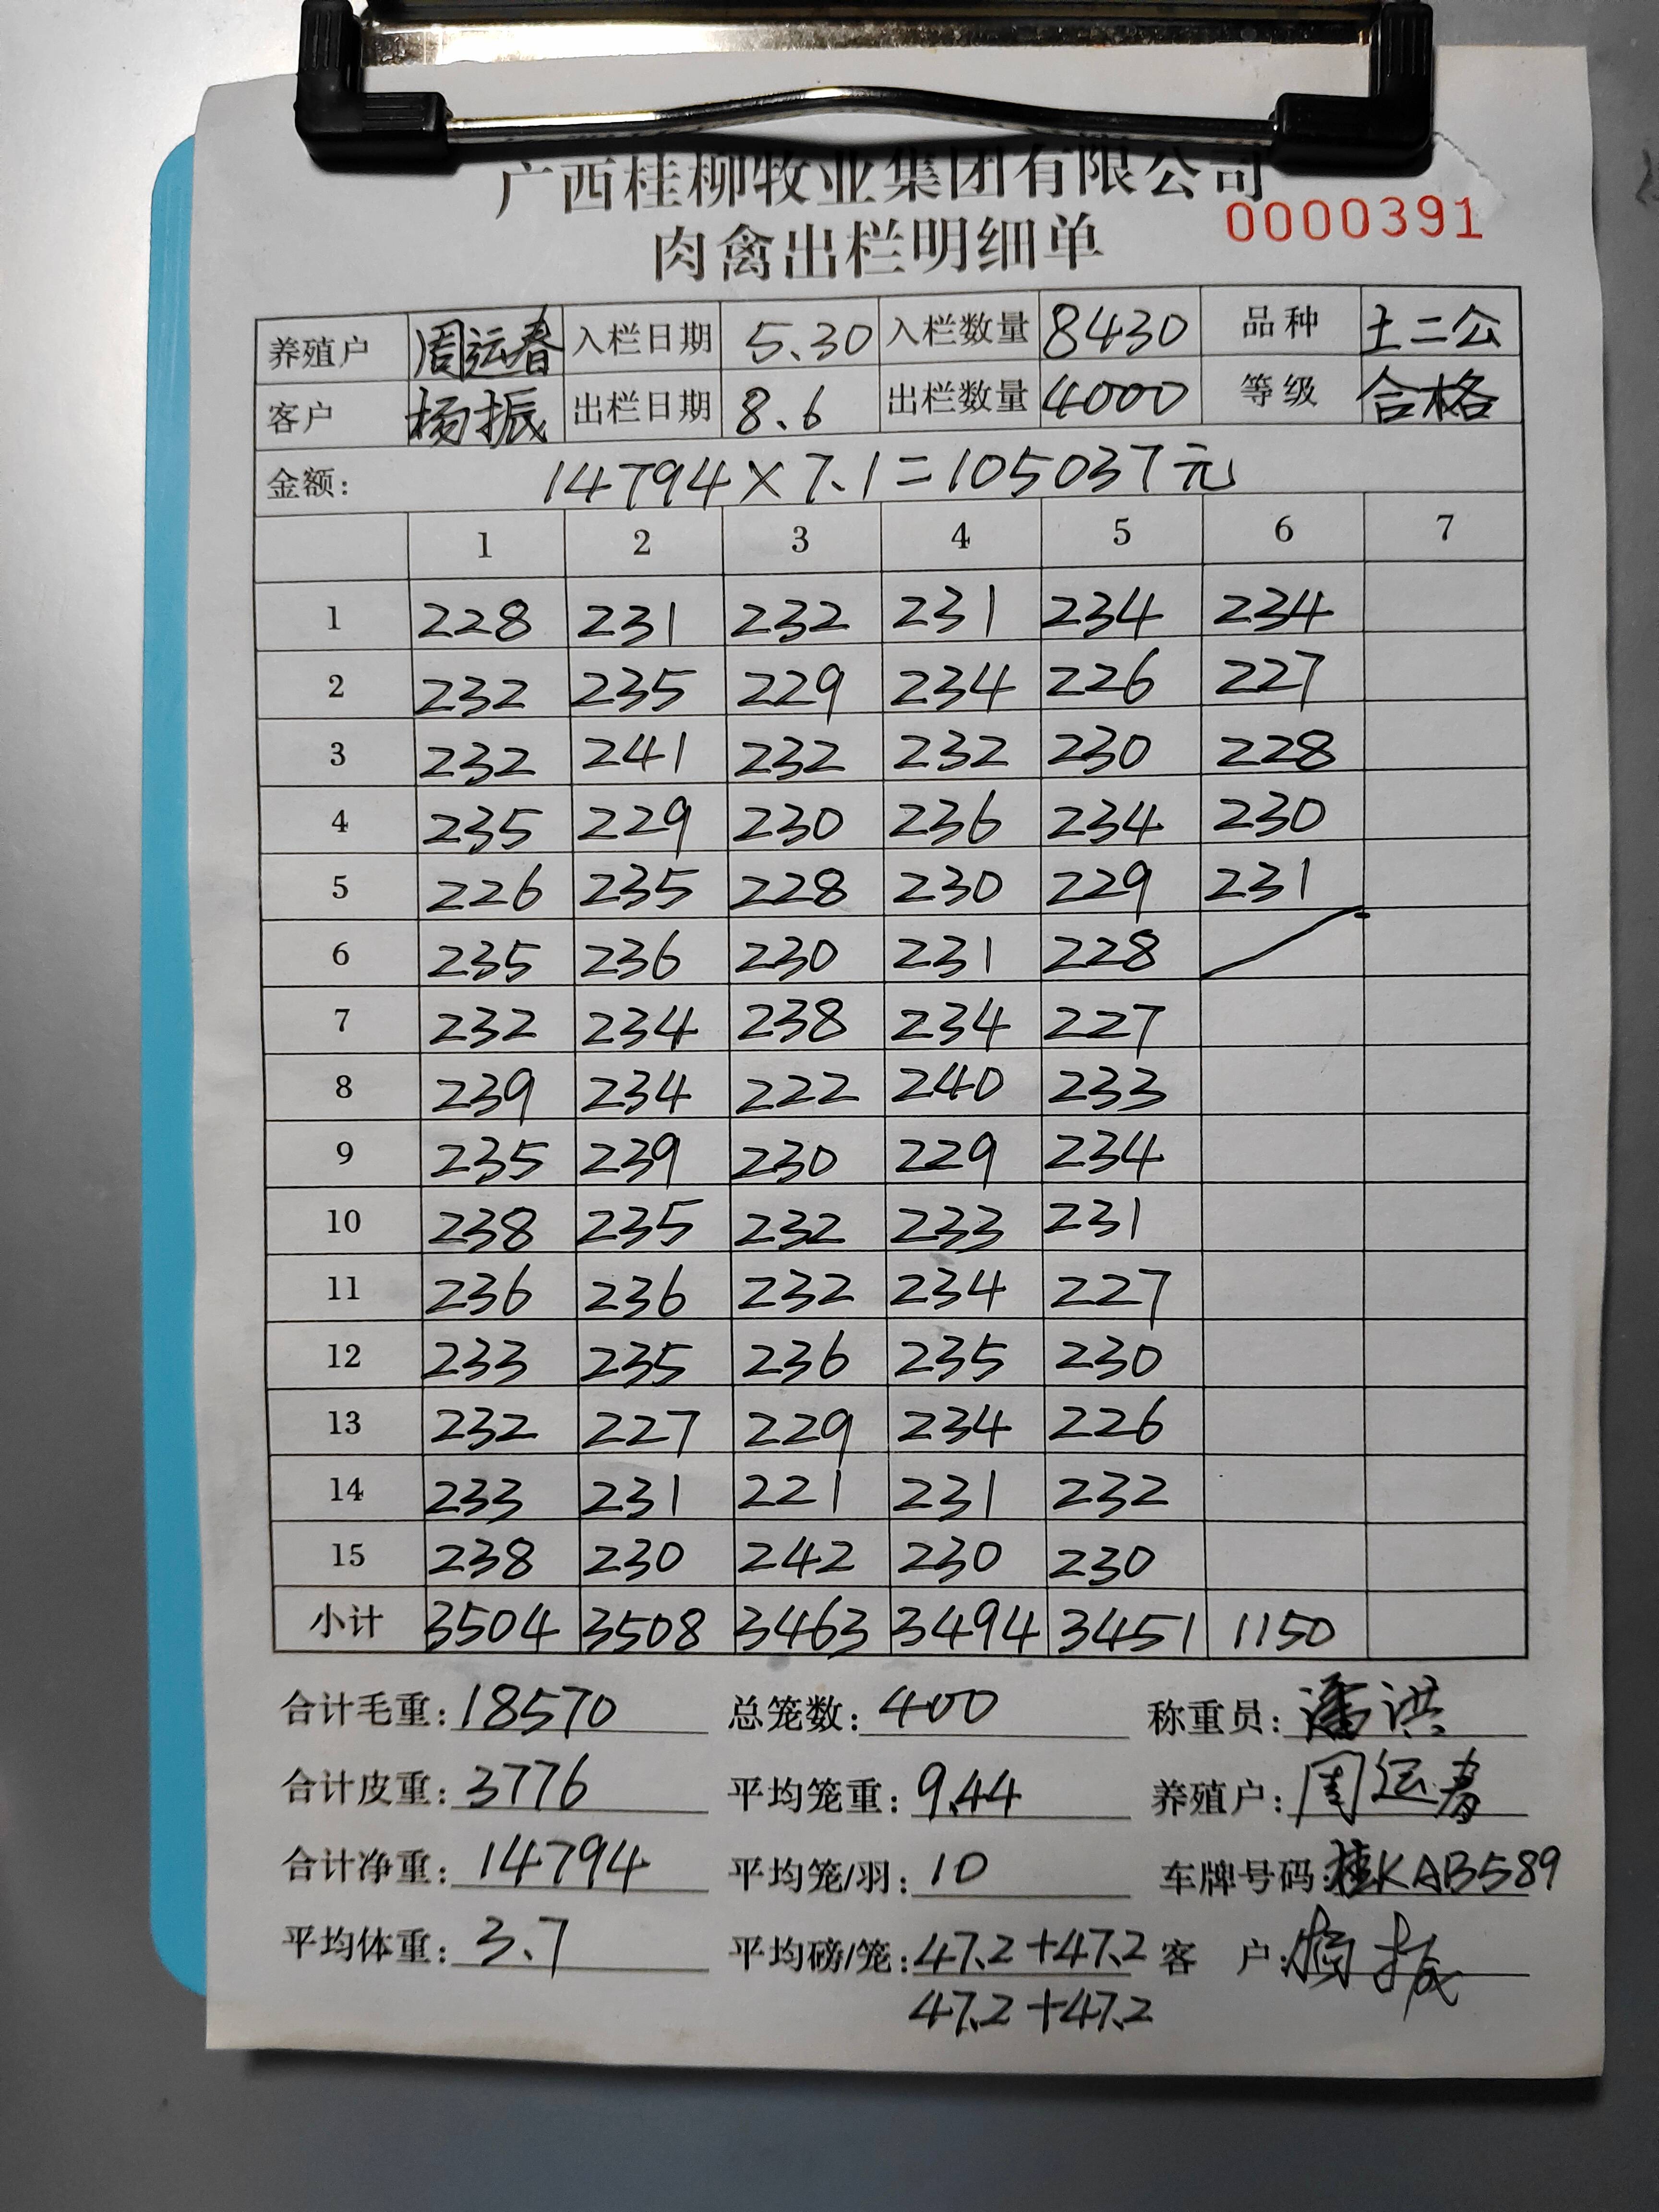 广西桂柳牧业集团有限公司
肉禽出栏明细单 0000391
养殖户 周运春 入栏日期 5.30 入栏数量 8430 品种 土二公
客户 杨振 出栏日期 8.6 出栏数量 4000 等级 合格
金额: 14794×7.1=105037元
1 2 3 4 5 6 7
1 228 231 232 231 234 234
2 232 235 229 234 226 227
3 232 241 232 232 230 228
4 235 229 230 236 234 230
5 226 235 228 230 229 231
6 235 236 230 231 228
7 232 234 238 234 227
8 239 234 222 240 233
9 235 239 230 229 234
10 238 235 232 233 231
11 236 236 232 234 227
12 233 235 236 235 230
13 232 227 229 234 226
14 233 231 221 231 232
15 238 230 242 230 230
小计 3504 3508 3463 3494 3451 1150
合计毛重: 18570 总笼数: 400 称重员: 潘洪
合计皮重: 3776 平均笼重: 9.44 养殖户: 周运春
合计净重: 14794 平均笼/羽: 10 车牌号码: 桂KAB589
平均体重: 3.7 平均磅/笼: 47.2+47.2 客 户: 杨振
47.2+47.2